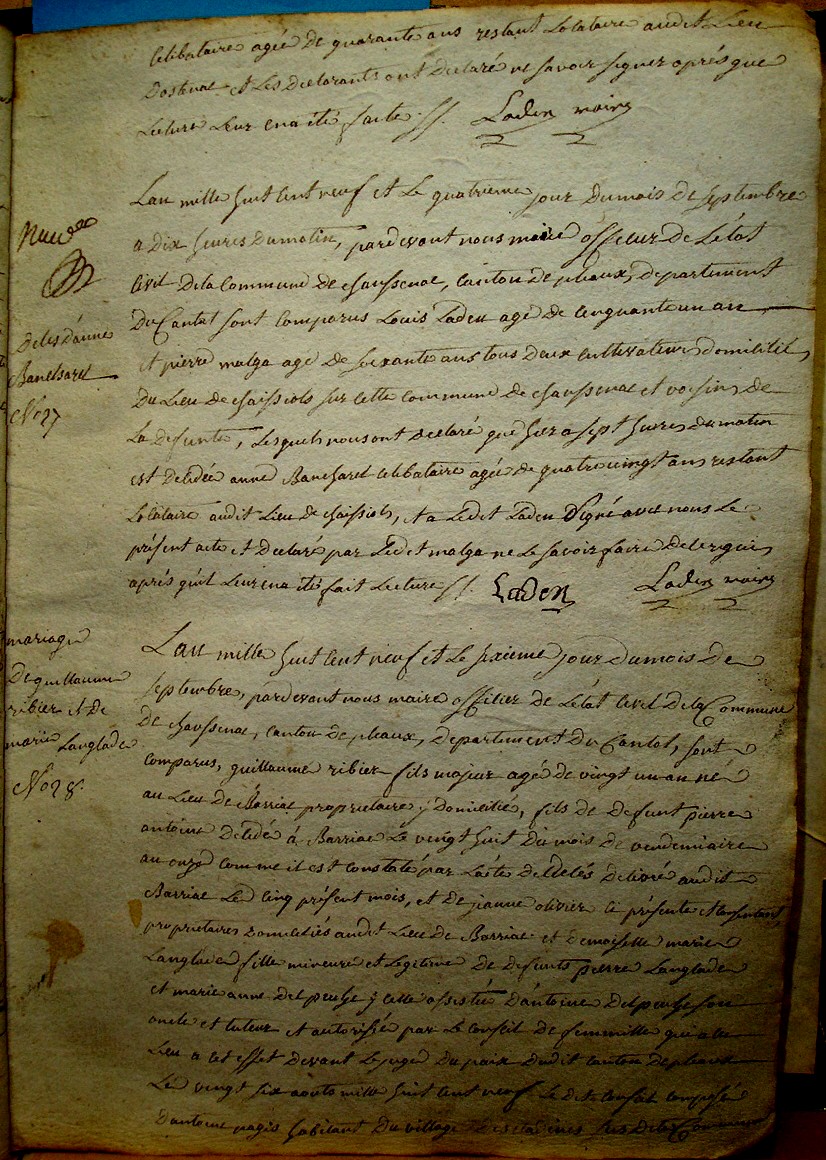 celibataire agée de quarante ans restant Locataire audit Lieu
Dostenac et Les Declarants ont declaré ne savoir signer aprés que
Lecture Leur en a été faite //. Laden maire
Lan mille huit cent neuf et Le quatrieme jour Dumois de septembre
a dix heures Dumatin, pardevant nous maire officier de Létat
Civil Dela Commune de chaussenac, canton de pleaux, departement
Du Cantal sont comparus Louis Laden agé de cinquante un an
et pierre malga agé de soixante ans tous deux cultivateurs domiciliés
Du Lieu de chaissiols sur cette commune de chaussenac et voisins de
La defunte, Lesquels nous ont declaré que hier a sept heures du matin
est decedée anne Bancharel celibataire agée de quatre vingt ans restant
Locataire audit Lieu de chaissiols, et a Ledit Laden signé avec nous Le
présent acte et declaré par Ledit malga ne Le savoir faire de ce requis
aprés quil Leur en a été fait Lecture //. Laden Laden maire
Deces danne
Bancharel
No 27
mariage
De guillaume
ribier et de
marie Langlade
No 28.
Lan mille huit cent neuf et Le sixieme jour dumois de
septembre, pardevant nous maire officier de Létat civil dela Commune
de chaussenac, canton de pleaux, departement du Cantal, sont
comparus, guillaume ribier fils majeur agé de vingt un an né
au Lieu de Barriac proprietaire y domicilié, fils de defunt pierre
antoine décédé à Barriac Le vingt huit du mois de vendemiaire
an onze comme il est constaté par Lacte de décés delivré audit
Barriac Le cinq présent mois, et de jeanne olivier ci présente et consentante,
proprietaires domiciliés audit Lieu de Barriac et demoiselle marie
Langlade fille mineure et Legitime de defunts pierre Langlade
et marie anne delpeuhe y celle assistée dantoine delpeuhe son
oncle et tuteur et autorisée par Le conseil de femmille qui a eu
Lieu a cet effet devant Lejuge du paix dudit canton de pleaux
Le vingt six aoust mille huit cent neuf Le dit conseil composé
dantoine pagis habitant du village sus dite Commune